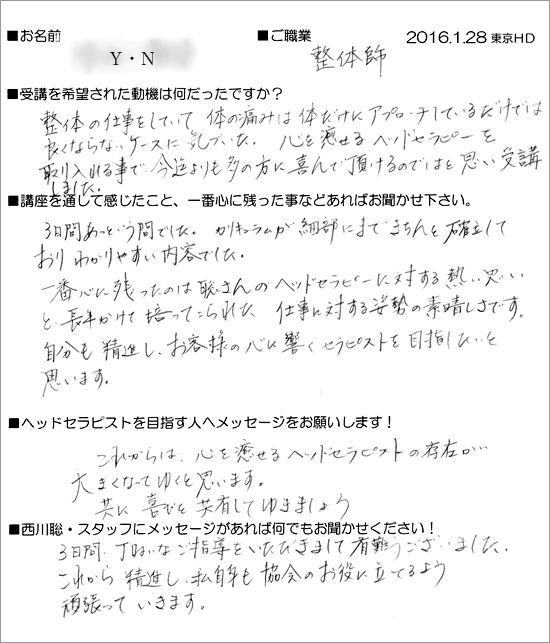 ■お名前 ■ご職業 2016.1.28 東京HD
Y・N 整体師
■受講を希望された動機は何だったですか？
整体の仕事をしていて 体の痛みは体だけにアプローチしているだけでは
良くならないケースに気づいた。 心を癒せるヘッドセラピーを
取り入れる事で、今迄よりも多の方に喜んで頂けるのではと思い受講
しました。
■講座を通して感じたこと、一番心に残った事などあればお聞かせ下さい。
3日間あっという間でした。カリキュラムが細部にまできちんと確立して
おりわかりやすい内容でした。
一番心に残ったのは聡さんのヘッドセラピーに対する熱い思い
と、長年かけて培ってこられた 仕事に対する姿勢の素晴しさです。
自分も精進し、お客様の心に響くセラピストを目指したいと
思います。
■ヘッドセラピストを目指す人へメッセージをお願いします！
これからは、心を癒せるヘッドセラピストの存在が…
大きくなってゆくと思います。
共に喜びを共有してゆきましょう
■西川聡・スタッフにメッセージがあれば何でもお聞かせください！
3日間、丁ねいなご指導をいただきまして有難うございました。
これから精進し、私自身も協会のお役に立てるよう
頑張っていきます。